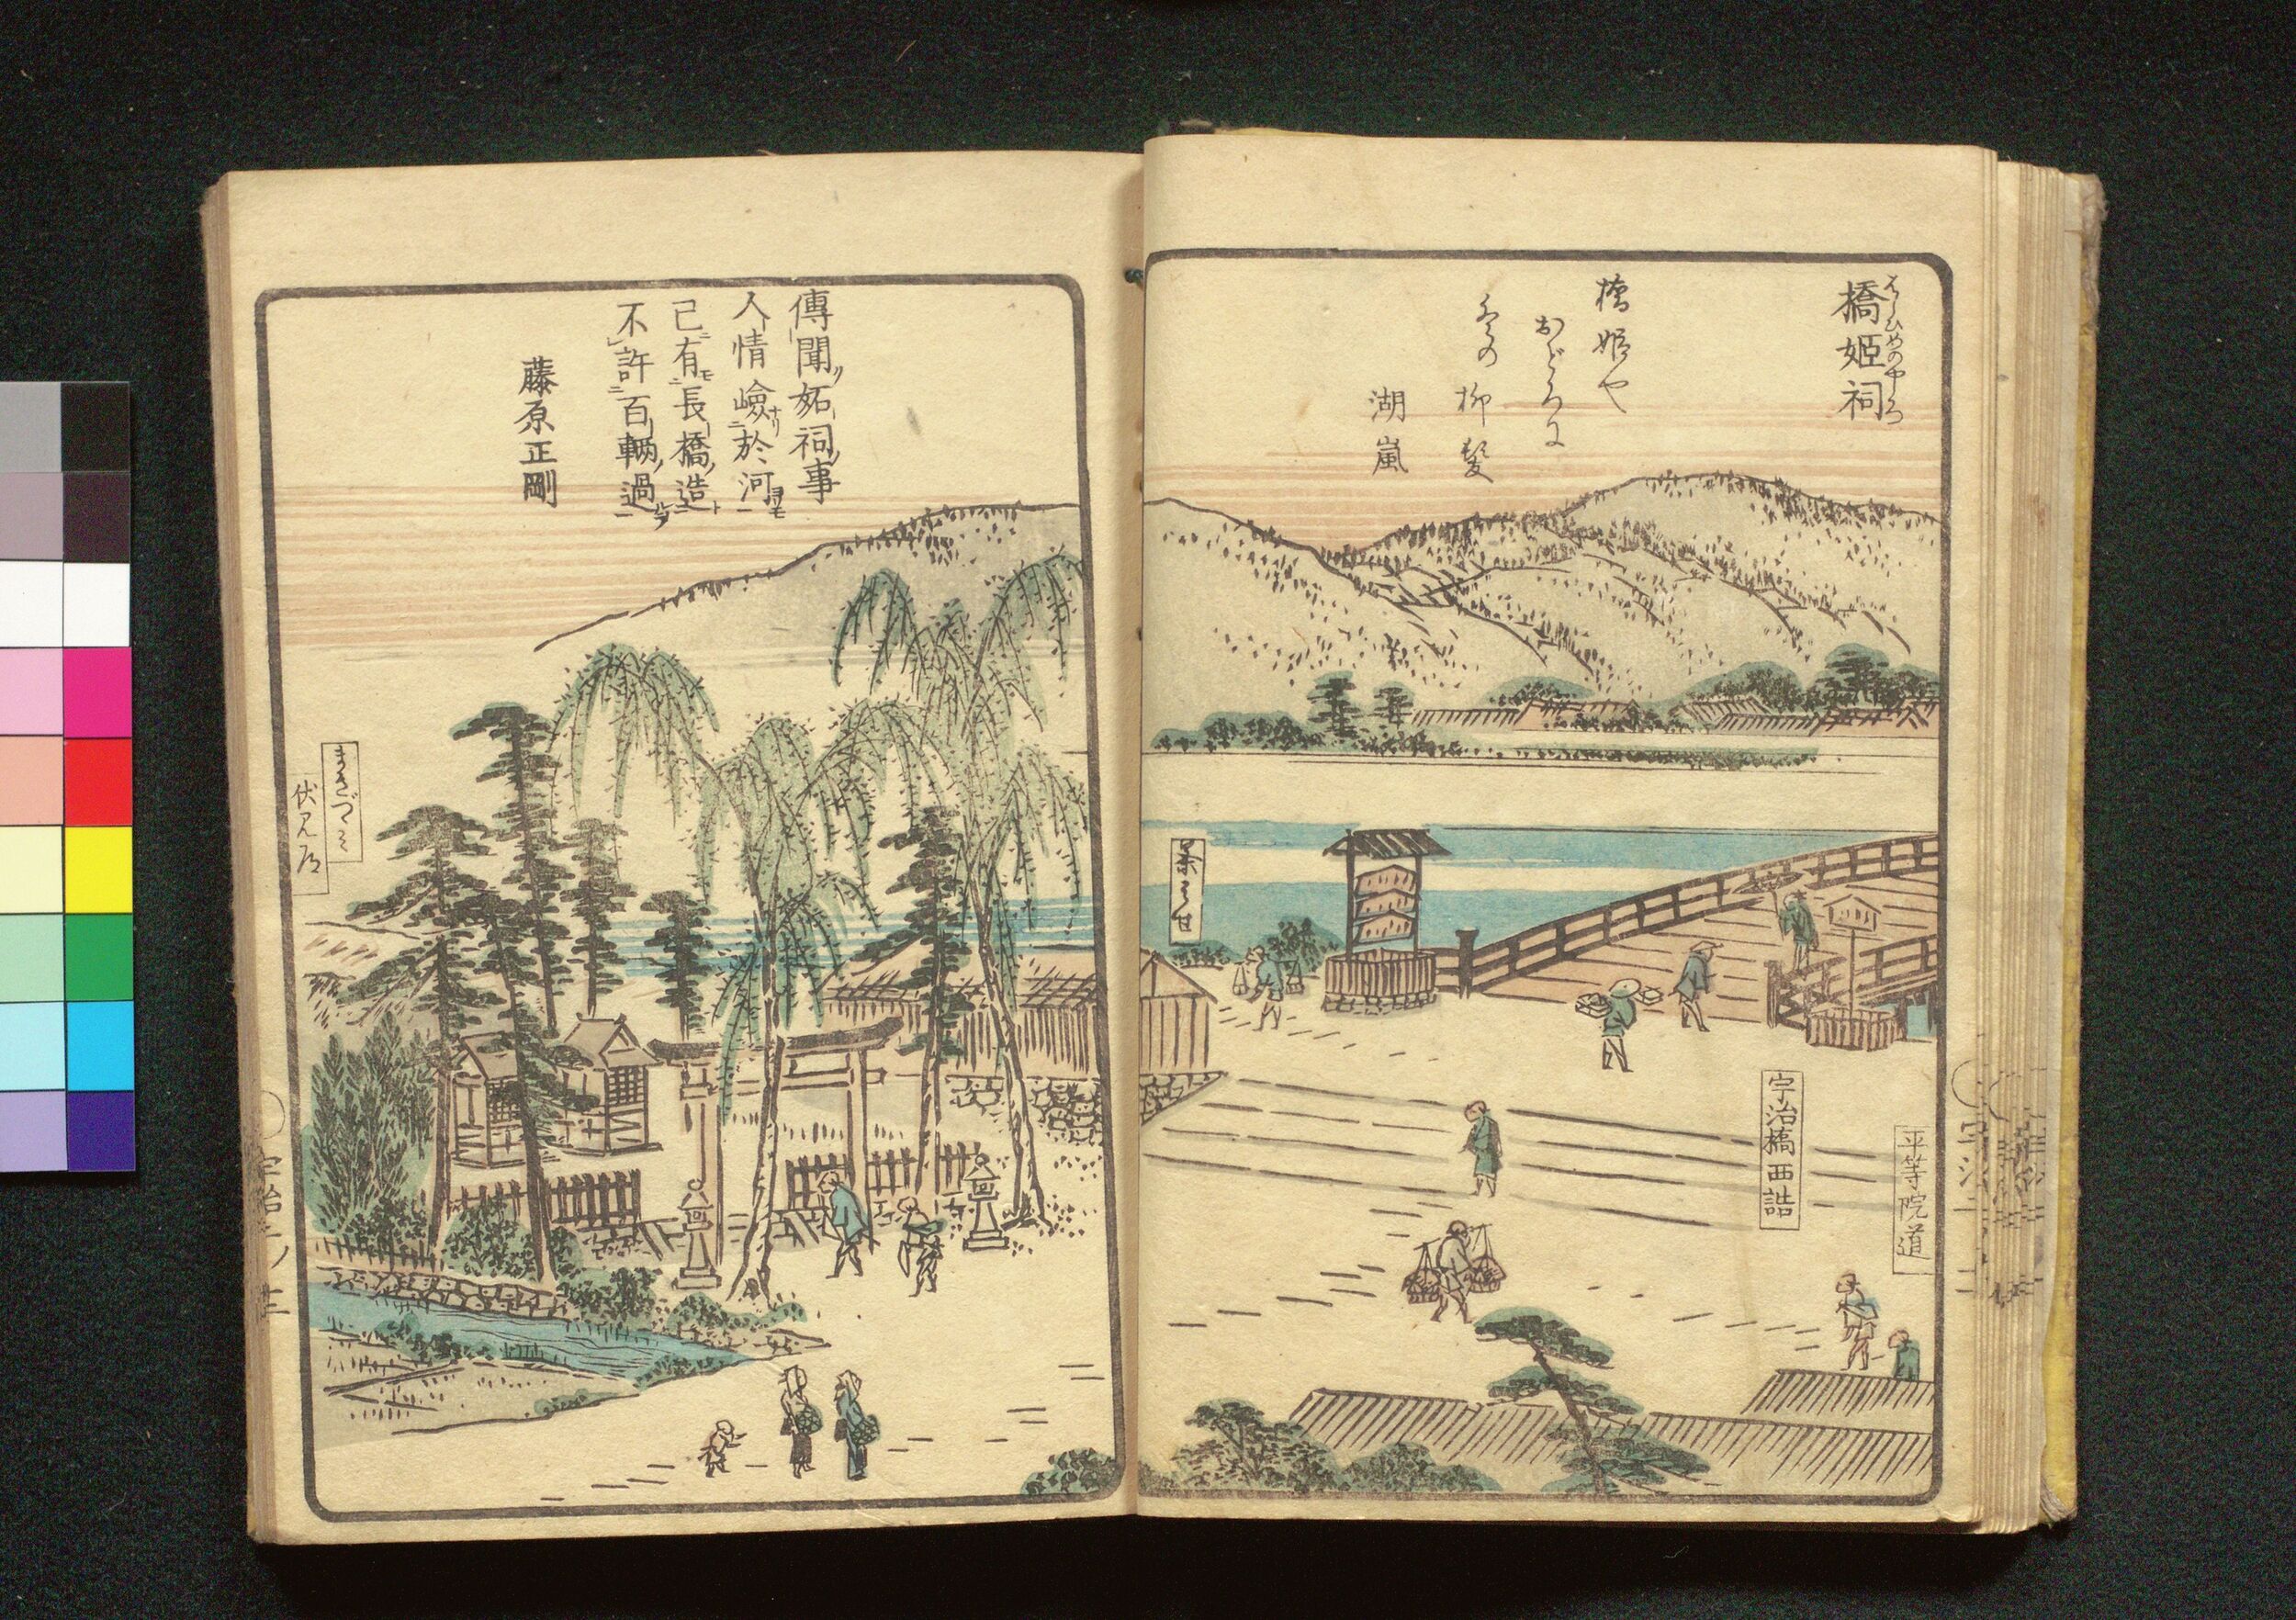 橋姫祠
はしひめのやしろ
橋姫や
おどろに
柳髪
湖嵐
宇治橋西詰
平等院道
茶みせ
傳聞妬祠事
人情嶮於河
已有長橋造
不許百輌過
藤原正剛
まきづミ
伏見道